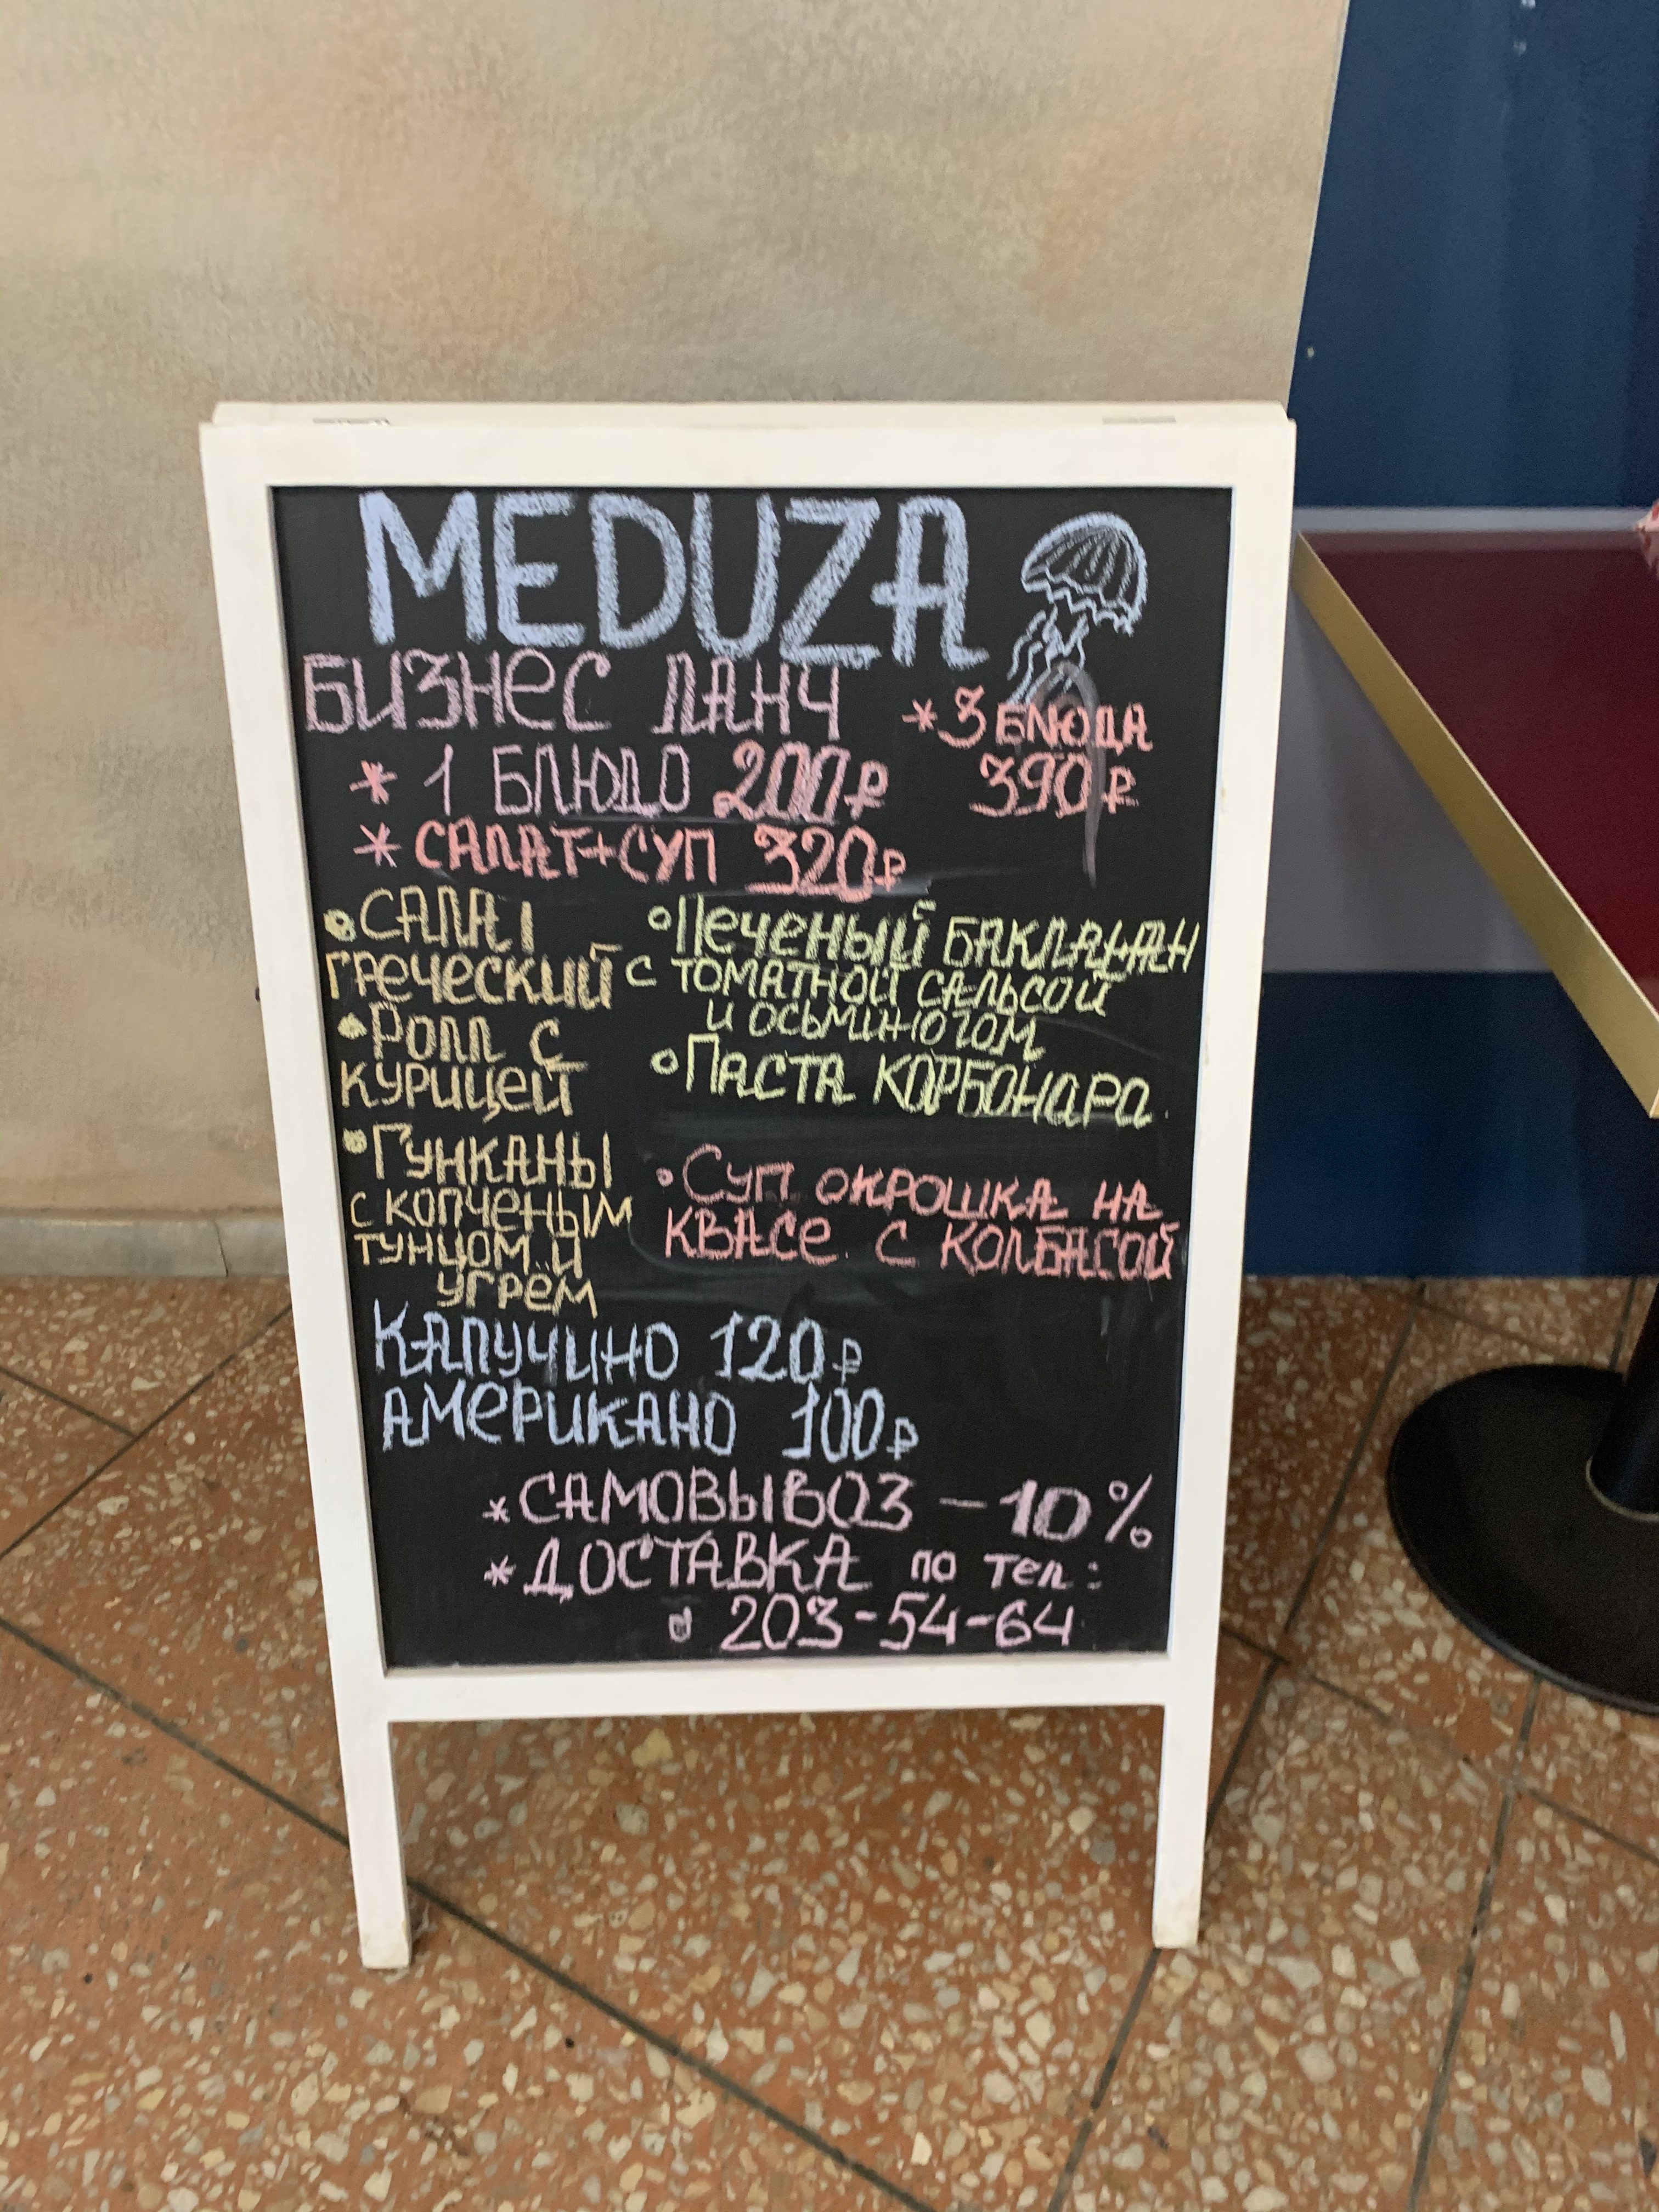 MEDUZA
БИЗНЕС ЛАНЧ
* 1 БЛЮДО 200₽
* САЛАТ+СУП 320₽
* 3 БЛЮДА
390₽
• САЛАТ
ГРЕЧЕСКИЙ
• Ролл с
КУРИЦЕЙ
• Гунканы
с копченым
тунцом и
угрём
• Печеный БАКЛАЖАН
с томатной сальсой
и осьминогом
• Паста Корбонара
• Суп окрошка на
квасе с колбасой
КАПУЧИНО 120₽
АМЕРИКАНО 100₽
* САМОВЫВОЗ – 10%
* ДОСТАВКА по тел:
203-54-64